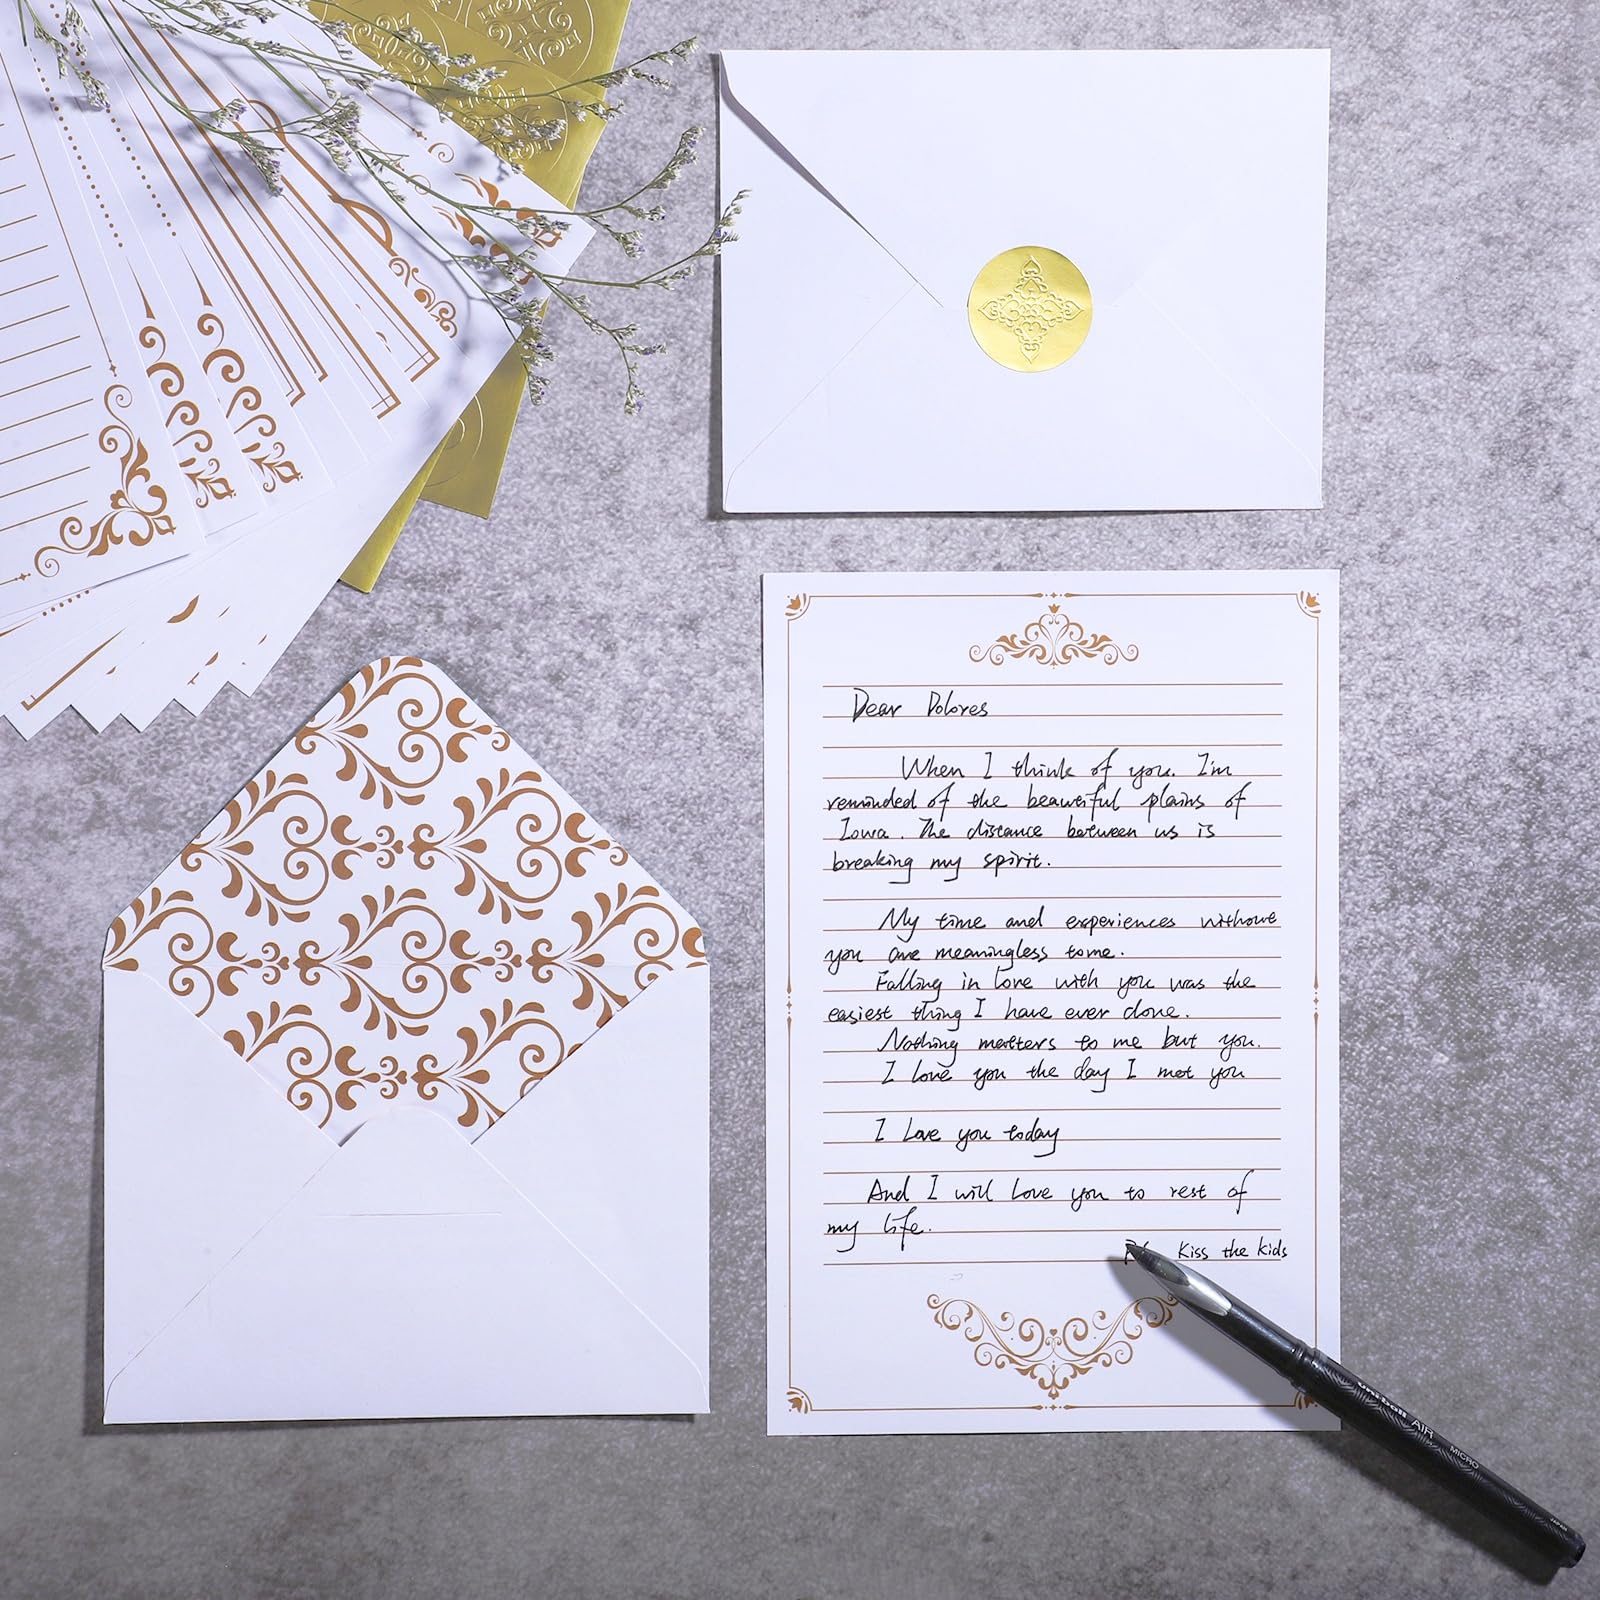 Dear Dolores
When I think of you. I'm
reminded of the beautiful plains of
Iowa. The distance between us is
breaking my spirit.
My time and experiences without
you are meaningless to me.
Falling in love with you was the
easiest thing I have ever done.
Nothing matters to me but you.
I love you the day I met you
I Love you today
And I will love you to rest of
my life.
Kiss the kids
uni-ball AIR MICRO
JAPAN